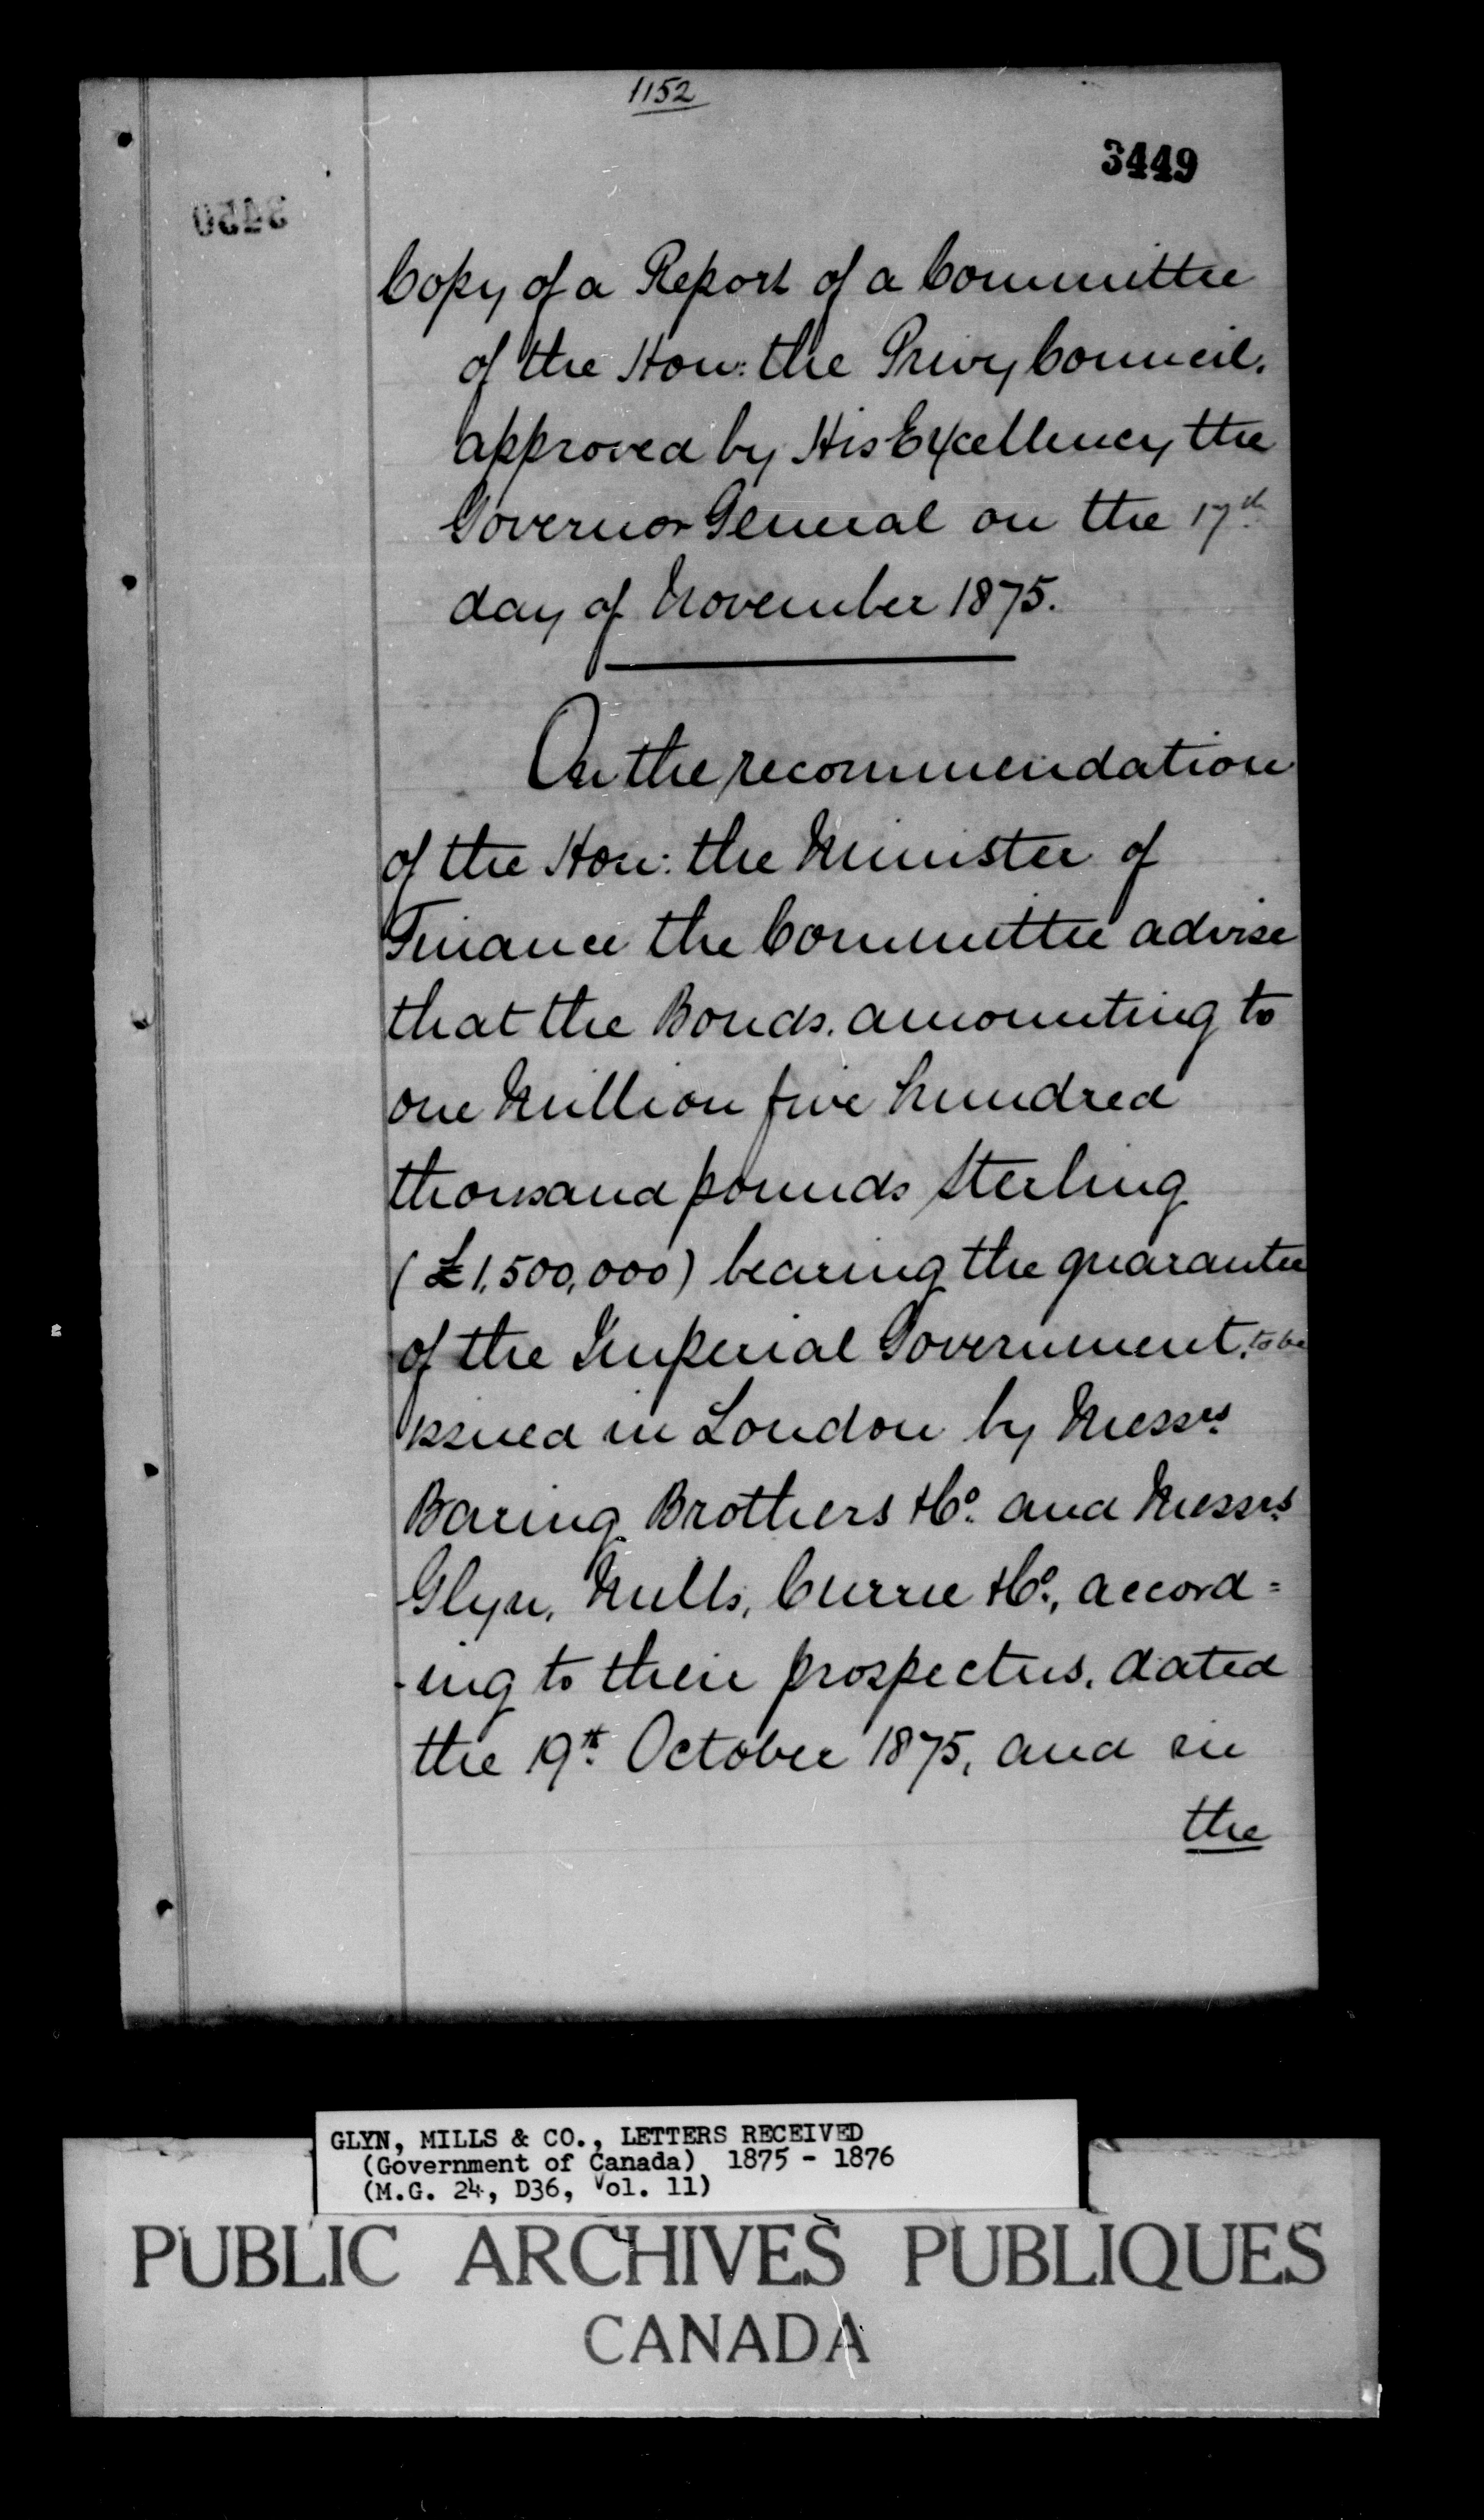 1152
3449
3450
Copy of a Report of a Committee
of the Hon: the Privy Council,
approved by His Excellency the
Governor General on the 17th
day of November 1875.
On the recommendation
of the Hon: the Minister of
Finance the Committee advise
that the Bonds, amounting to
one Million five hundred
thousand pounds Sterling
(£1,500,000) bearing the guarantee
of the Imperial Government, to be
issued in London by Messrs
Baring Brothers & Co. and Messrs
Glyn, Mills, Currie & Co., accord=
-ing to their prospectus, dated
the 19th October 1875, and in
the
GLYN, MILLS & CO., LETTERS RECEIVED
(Government of Canada) 1875 - 1876
(M.G. 24, D36, Vol. 11)
PUBLIC ARCHIVES PUBLIQUES
CANADA